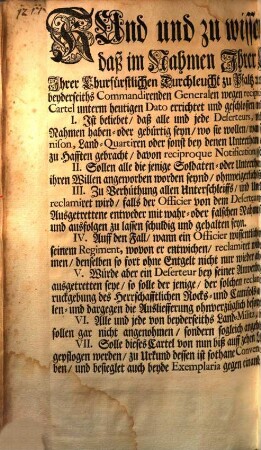 KUnd und zu wissen
daß im Nahmen Ihrer
Ihrer Churfürstlichen Durchleucht zu Pfaltz
beyderseiths Commandirenden Generalen wegen recipro
Cartel unterm heutigen Dato errichtet und geschlossen
I. Ist beliebet / daß alle und jede Deserteurs /
Nahmen haben- oder gebürtig seyn / wo sie wollen /
nison, Land-Quartiren oder sonst bey denen Unterthan
zu Hafften gebracht / davon reciproque Notification
II. Sollen alle die jenige Soldaten- oder Unterthanen
ihren Willen angeworben worden seynd /
III. Zu Verhüthung allen Unterschleiffs / und
reclamiret wird / falls der Officier von dem Deserteur
Ausgetrettene entweder mit wahr- oder falschen Nahmen
und ausfolgen zu lassen schuldig und gehalten seyn.
IV. Auff den Fall / wann ein Officier
seinem Regiment, wovon er entwichen / reclamiret
men / denselben so fort ohne Entgelt nicht nur wieder
V. Würde aber ein Deserteur bey seiner
ausgetretten seye / so solle der jenige / der solchen
ruckgebung des Herrschafftlichen Rocks- und Camisols
len- und dargegen die Ausliefferung ohnverzüglich
VI. Alle und jede von beyderseiths Land-Militz
sollen gar nicht angenohmen / sondern sogleich
VII. Solle dieses Cartel von nun biß auff
gepflogen werden / zu Urkund dessen ist sothane Conven
ben / und besieglet auch beyde Exemplaria gegen